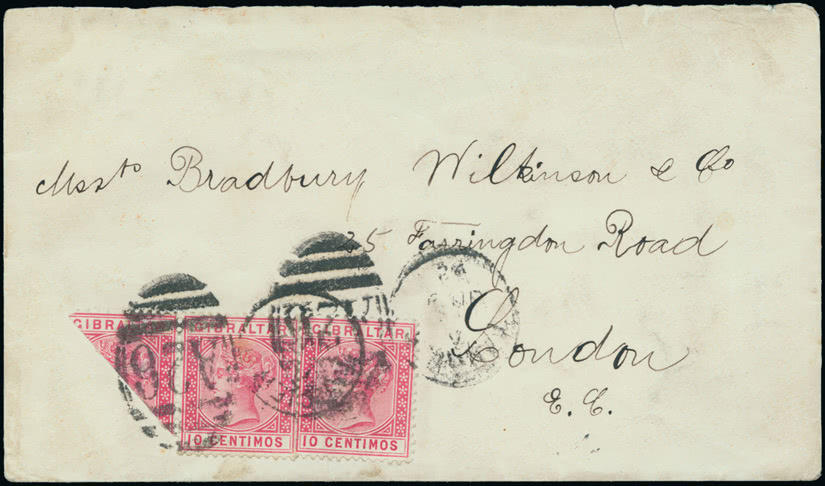 Messrs Bradbury Wilkinson & Co
25 Farringdon Road
London
E. C.
GIBRALTAR GIBRALTAR GIBRALTAR
A26
10 CENTIMOS 10 CENTIMOS